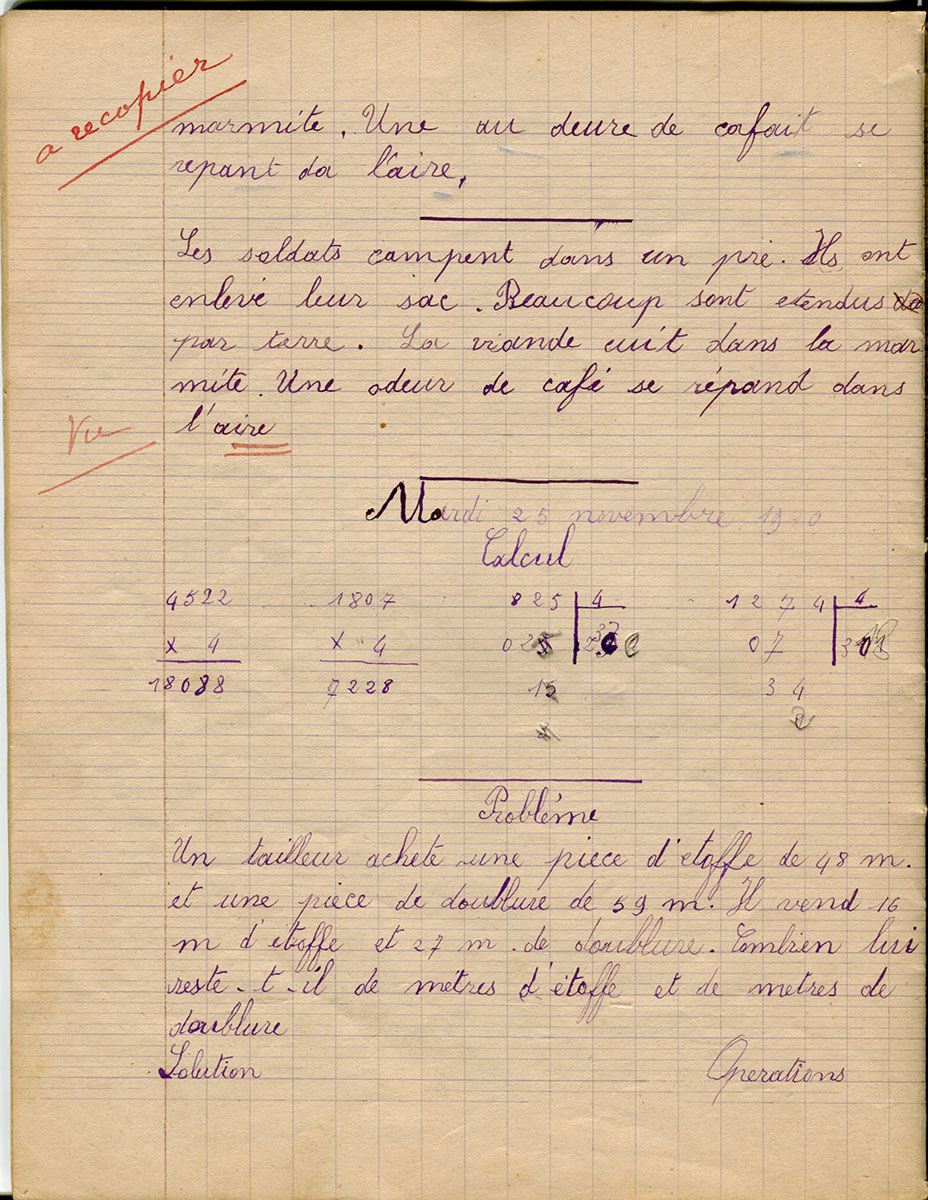 a recopier
marmite. Une au deure de cafait se
repant da l'aire,
Les soldats campent dans un pré. Ils ont
enlevé leur sac. Beaucoup sont etendus
par terre. La viande cuit dans la mar
mite. Une odeur de café se répand dans
l'aire
Vu
Mardi 25 novembre
Calcul
4522 1807 825 4 1274 4
x 4 x 4 02 07
18088 7228 15 34
Problème
Un tailleur achete une piece d'etoffe de 48 m.
et une pièce de doublure de 59 m. Il vend 16
m d'etoffe et 27 m. de doublure. Combien lui
reste-t-il de mètres d'étoffe et de metres de
doublure
Solution Operations